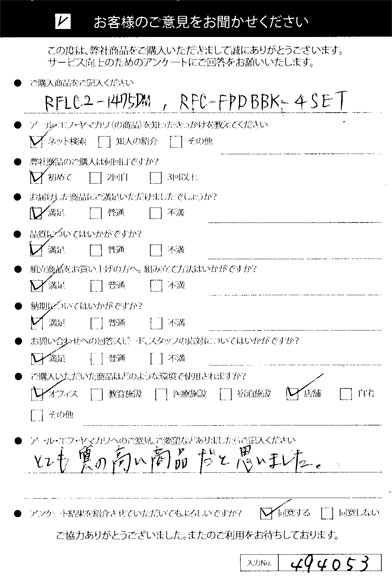 お客様のご意見をお聞かせください
この度は、弊社商品をご購入いただきまして誠にありがとうございます。
サービス向上のためのアンケートにご回答をお願いいたします。
● ご購入商品をご記入ください
RFLC2-1475DM , RFC-FPDBBK= 4SET
● アール・エフ・ヤマカワ(の商品)を知ったきっかけを教えてください
ネット検索 知人の紹介 その他
● 弊社商品のご購入は何回目ですか?
初めて 2回目 3回以上
● お届けした商品にご満足いただけましたでしょうか?
満足 普通 不満
● 品質についてはいかがですか?
満足 普通 不満
● 組立商品をお買い上げの方へ。組み立て方法はいかがですか?
満足 普通 不満
● 納期についてはいかがですか?
満足 普通 不満
● お問い合わせへの回答スピード、スタッフの応対についてはいかがですか?
満足 普通 不満
● ご購入いただいた商品はどのような環境で使用されますか?
オフィス 教育施設 医療施設 宿泊施設 店舗 自宅
その他
● アール・エフ・ヤマカワへのご意見、ご要望などありましたらご記入ください
とても質の高い商品だと思いました。
● アンケート結果を紹介させていただいてもよろしいですか? 同意する 同意しない
ご協力ありがとうございました。またのご利用をお待ちしております。
入力No. 494053